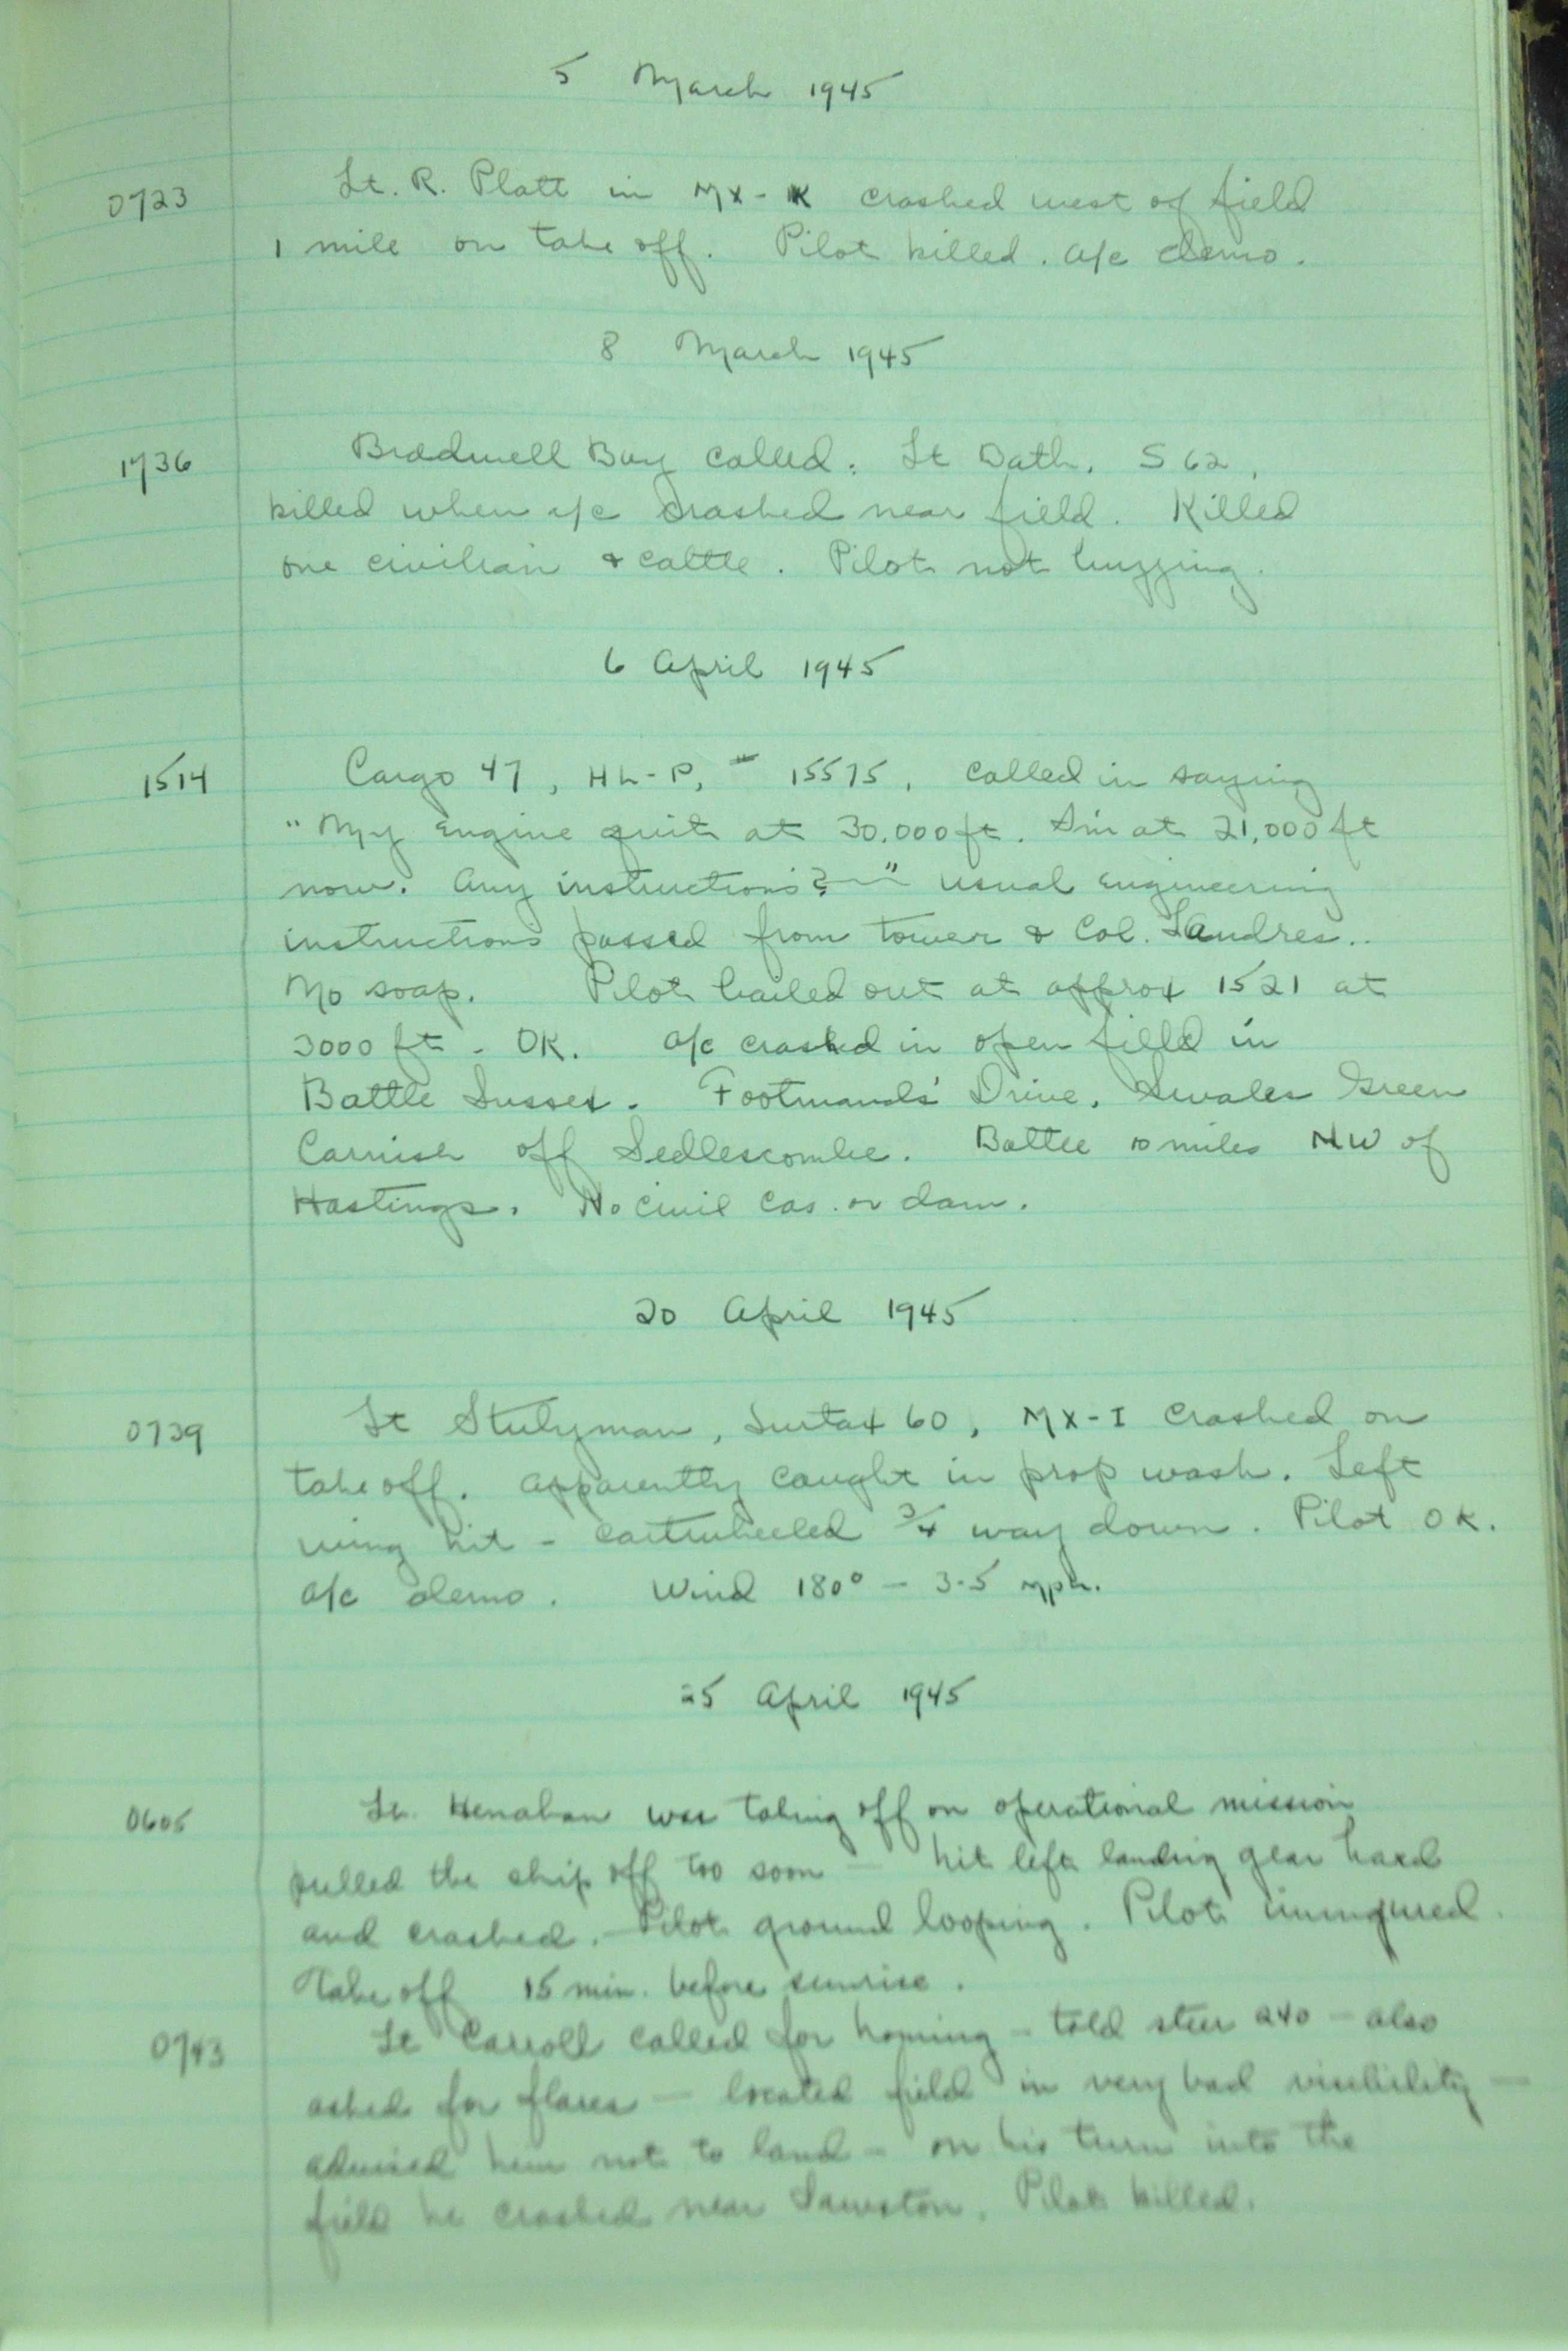 5 March 1945
0723 Lt. R. Platt in MX-K crashed west of field
1 mile on take off. Pilot killed. a/c demo.
8 March 1945
1736 Bradwell Bay called. Lt Dath, S 62,
killed when a/c crashed near field. Killed
one civilian & cattle. Pilot not buzzing.
6 April 1945
1514 Cargo 47, HL-P, # 15575, called in saying
"My engine quit at 30,000 ft. I'm at 21,000 ft
now. Any instructions?—" usual engineering
instructions passed from tower & Col. Landres..
No soap. Pilot bailed out at approx 1521 at
3000 ft - OK. a/c crashed in open field in
Battle Sussex. Drive, Swales Green
off Sedlescombe. Battle 10 miles NW of
Hastings. No civil cas. or dam.
20 April 1945
0739 Lt Surtax 60, MX-I crashed on
take off. apparently caught in prop wash. Left
wing hit - cartwheeled 3/4 way down. Pilot OK.
a/c demo. Wind 180° - 3-5 mph.
25 April 1945
0605 Lt. Henahan was taking off on operational mission
pulled the ship off too soon — hit left landing gear hard
and crashed. — Pilot ground looping. Pilot uninjured.
Take off 15 min. before sunrise.
0743 Lt Carroll called for homing - told steer 240 - also
asked for flares — located field in very bad visibility —
advised him not to land - on his turn into the
field he crashed near Sawston. Pilot killed.